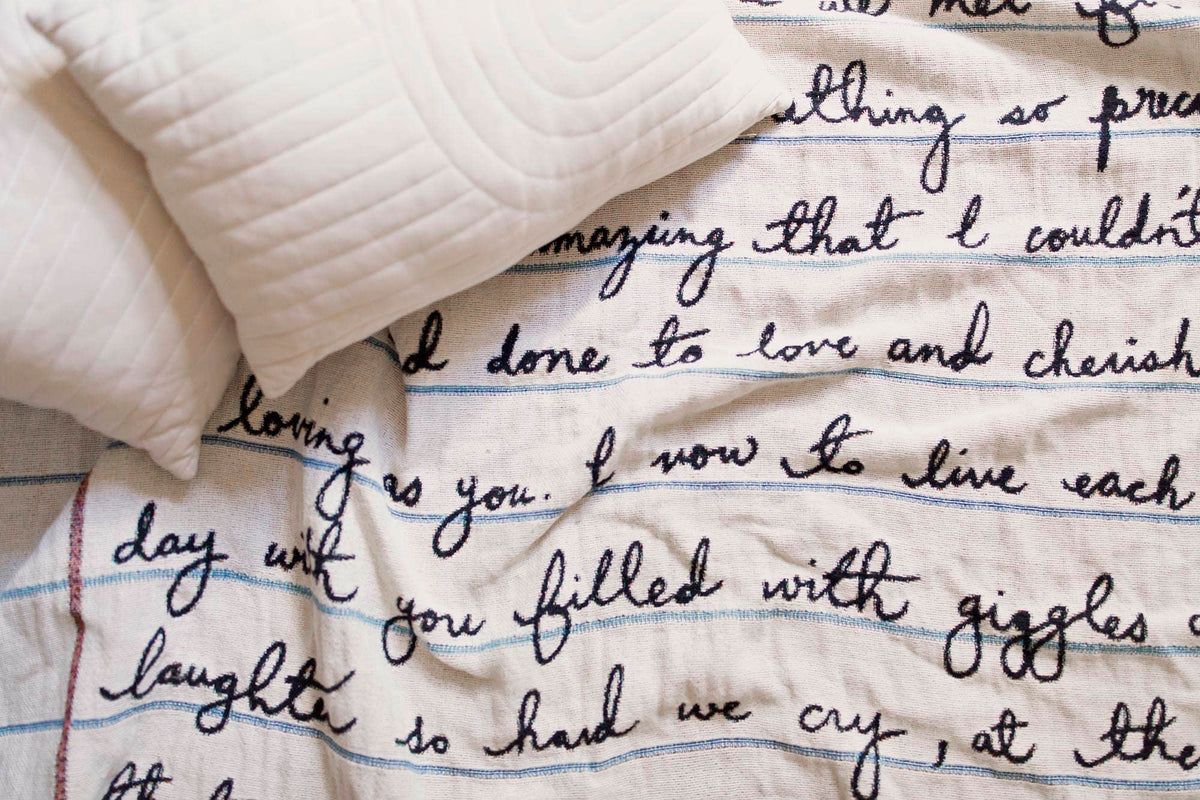 we met
so
that I couldn't
done to love and cherish
loving as you. I vow to live each
day with you filled with giggles
laughter so hard we cry, at the